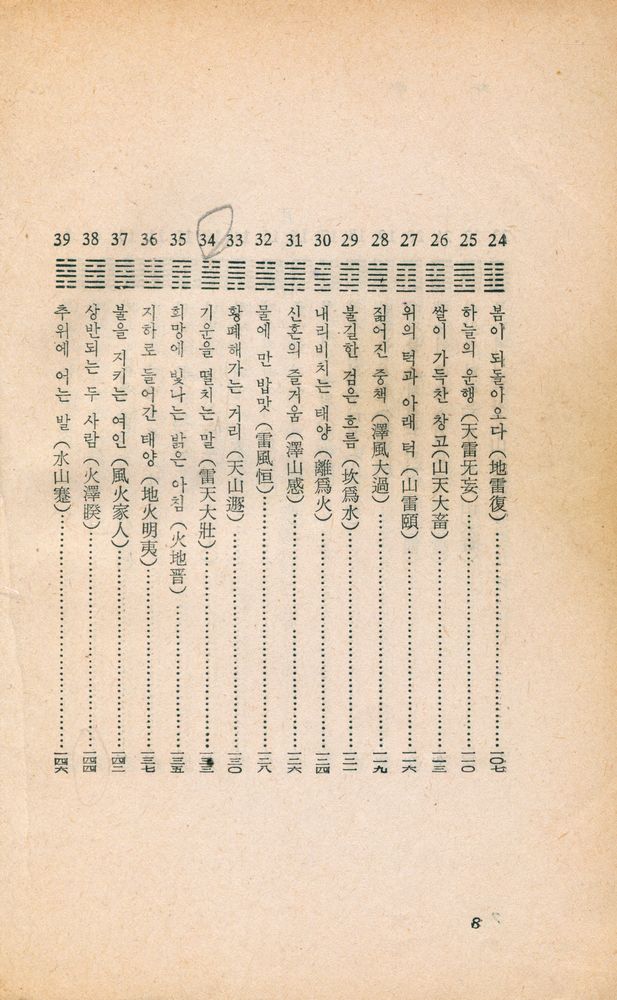 24 봄이 되돌아오다 (地雷復)……一〇七
25 하늘의 운행 (天雷无妄)……一一〇
26 쌀이 가득찬 창고(山天大畜)……一一三
27 위의 턱과 아래 턱 (山雷頤)……一一六
28 짊어진 중책 (澤風大過)……一一九
29 불길한 검은 흐름 (坎爲水)……一二一
30 내리비치는 태양 (離爲火)……一二四
31 신혼의 즐거움 (澤山感)……一二六
32 물에 만 밥맛 (雷風恒)……一二八
33 황폐해가는 거리 (天山遯)……一三〇
34 기운을 떨치는 말 (雷天大壯)……一三三
35 희망에 빛나는 밝은 아침 (火地晋)……一三五
36 지하로 들어간 태양 (地火明夷)……一三七
37 불을 지키는 여인 (風火家人)……一四二
38 상반되는 두 사람 (火澤睽)……一四四
39 추위에 어는 발 (水山蹇)……一四六
8